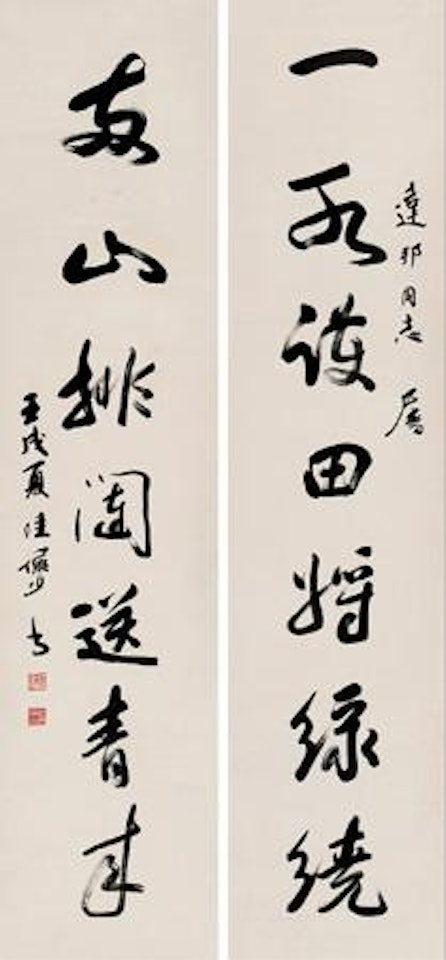 達邦同志 屬
一水護田將綠繞
兩山排闥送青來
壬戌夏陸儼少書